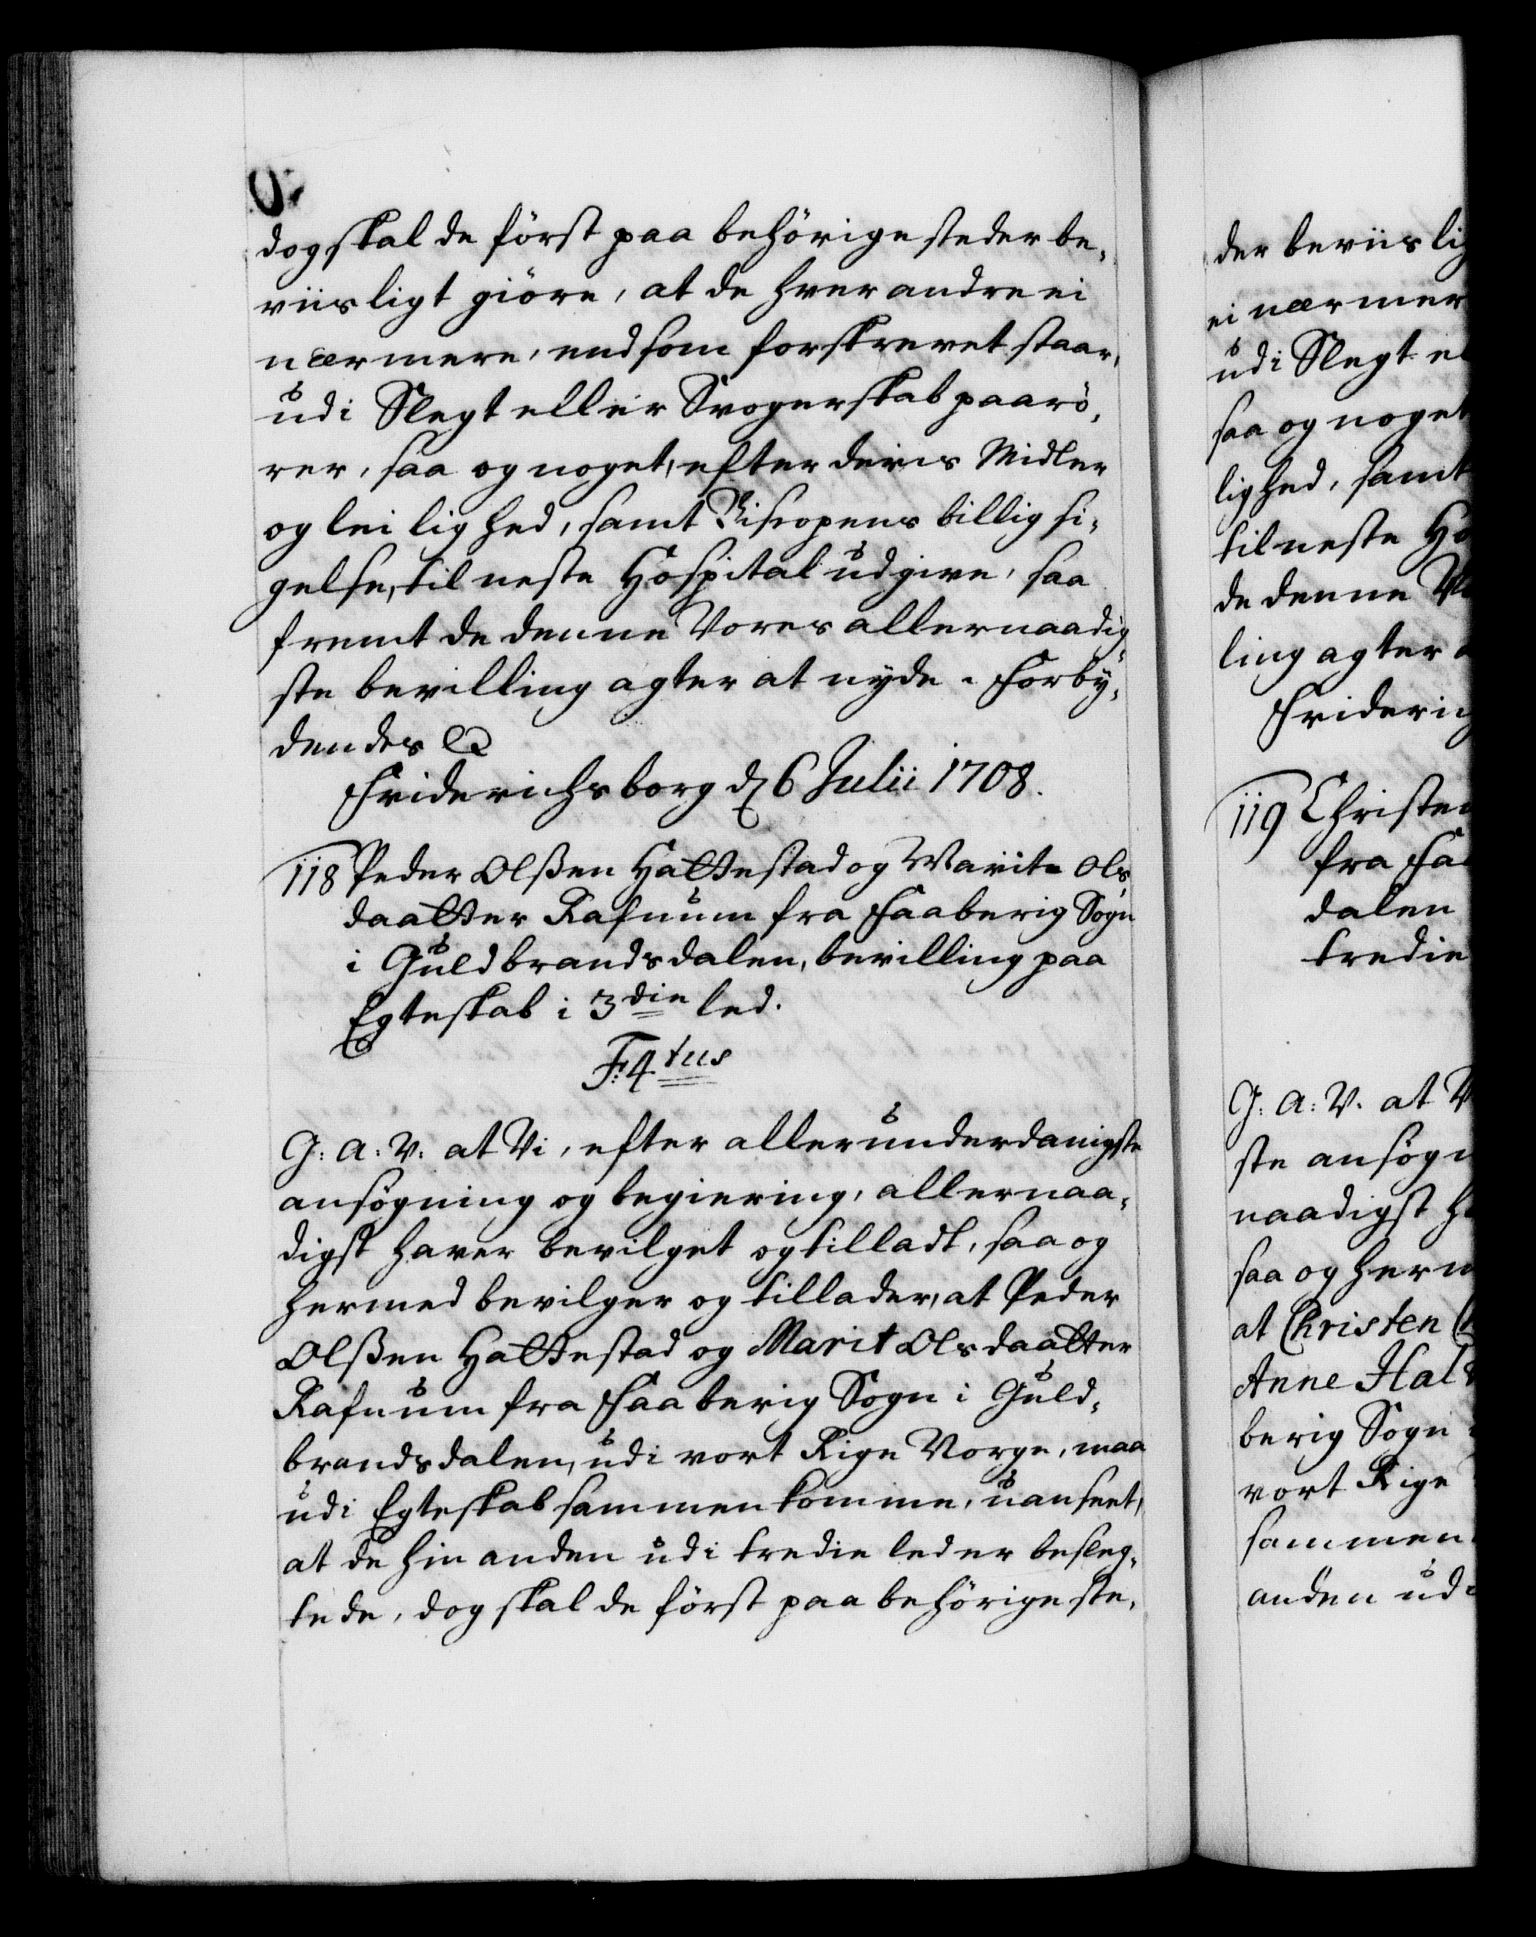 dog skal de först paa behörige steder be,
viisligt giöre, at de hver andre ei
nærmere, end som forskrevet staar,
udi Slegt eller Svogerskab paarö,
rer, saa og noget, efter deris Midler
og leilighed, samt Biscopens billig si,
gelse, til neste Hospital udgive, saa
fremt de denne Vores allernaadig,
ste bevilling agter at nyde. Forby,
dendes &
Friderichsborg d 6 Julii 1708.
118 Peder Olßen Hattestad og Marite Ols,
daatter Rafnum fra Faaberig Sogn
i Guldbrandsdalen, bevilling paa
Egteskab i 3die led.
F: 4tus
G: A: V: at Vi, efter allerunderdanigste
ansögning og begiering, allernaa,
digst haver bevilget og tilladt, saa og
hermed bevilger og tillader, at Peder
Olßen Hattestad og Marit Olsdaatter
Rafnum fra Faaberig Sogn i Guld,
brandsdalen, udi vort Rige Norge, maa
udi Egteskab sammen komme, uanseet,
at de hin anden udi tredie led er besleg,
tede, dog skal de först paa behörige ste,
der beviislig
ei nærmer
udi Slegt el
saa og noget
lighed, samt
til neste Ho
de denne V
ling agter a
Friderich
119 Christen
fra Faa
dalen
tredie
G: A: V. at V
ste ansögn
naadigst ha
saa og herm
at Christen
Anne Hal
berig Sogn
vort Rige
sammen
anden udi